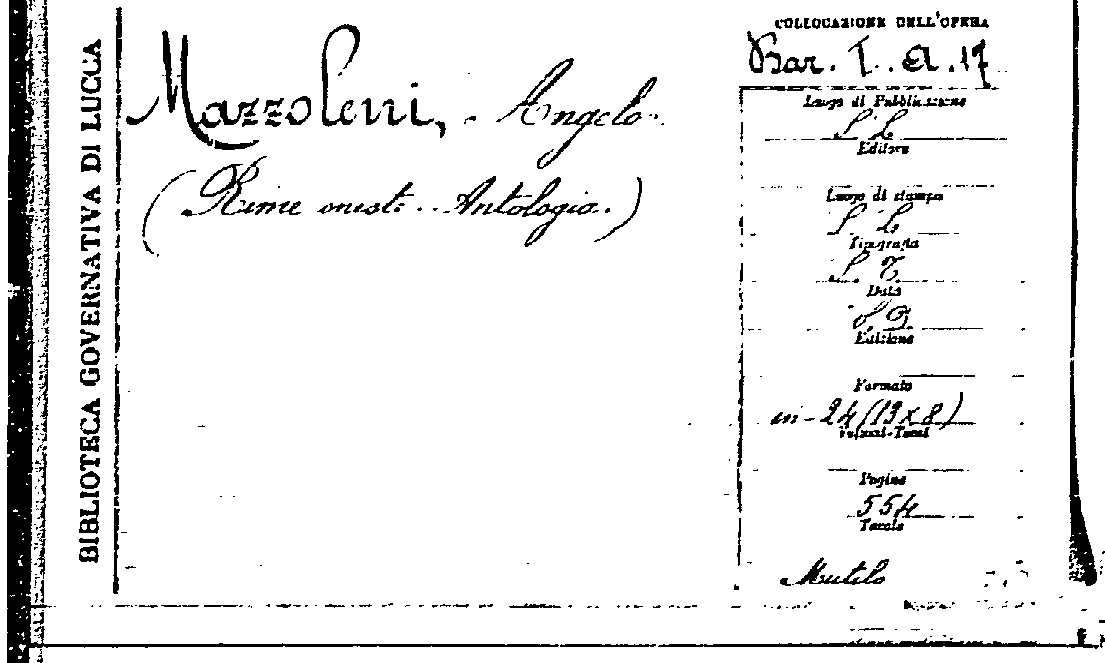 BIBLIOTECA GOVERNATIVA DI LUCCA
Mazzoleni, Angelo
(Rime oneste. Antologia.)
COLLOCAZIONE DELL'OPERA
Bar. T. A. 17
Luogo di Pubblicazione
S. L.
Editore
Luogo di stampa
S. L.
Tipografia
S. T.
Data
S. D.
Edizione
Formato
in-24 (13 x 8)
Volumi-Tomi
Pagine
554
Tavole
Mutilo